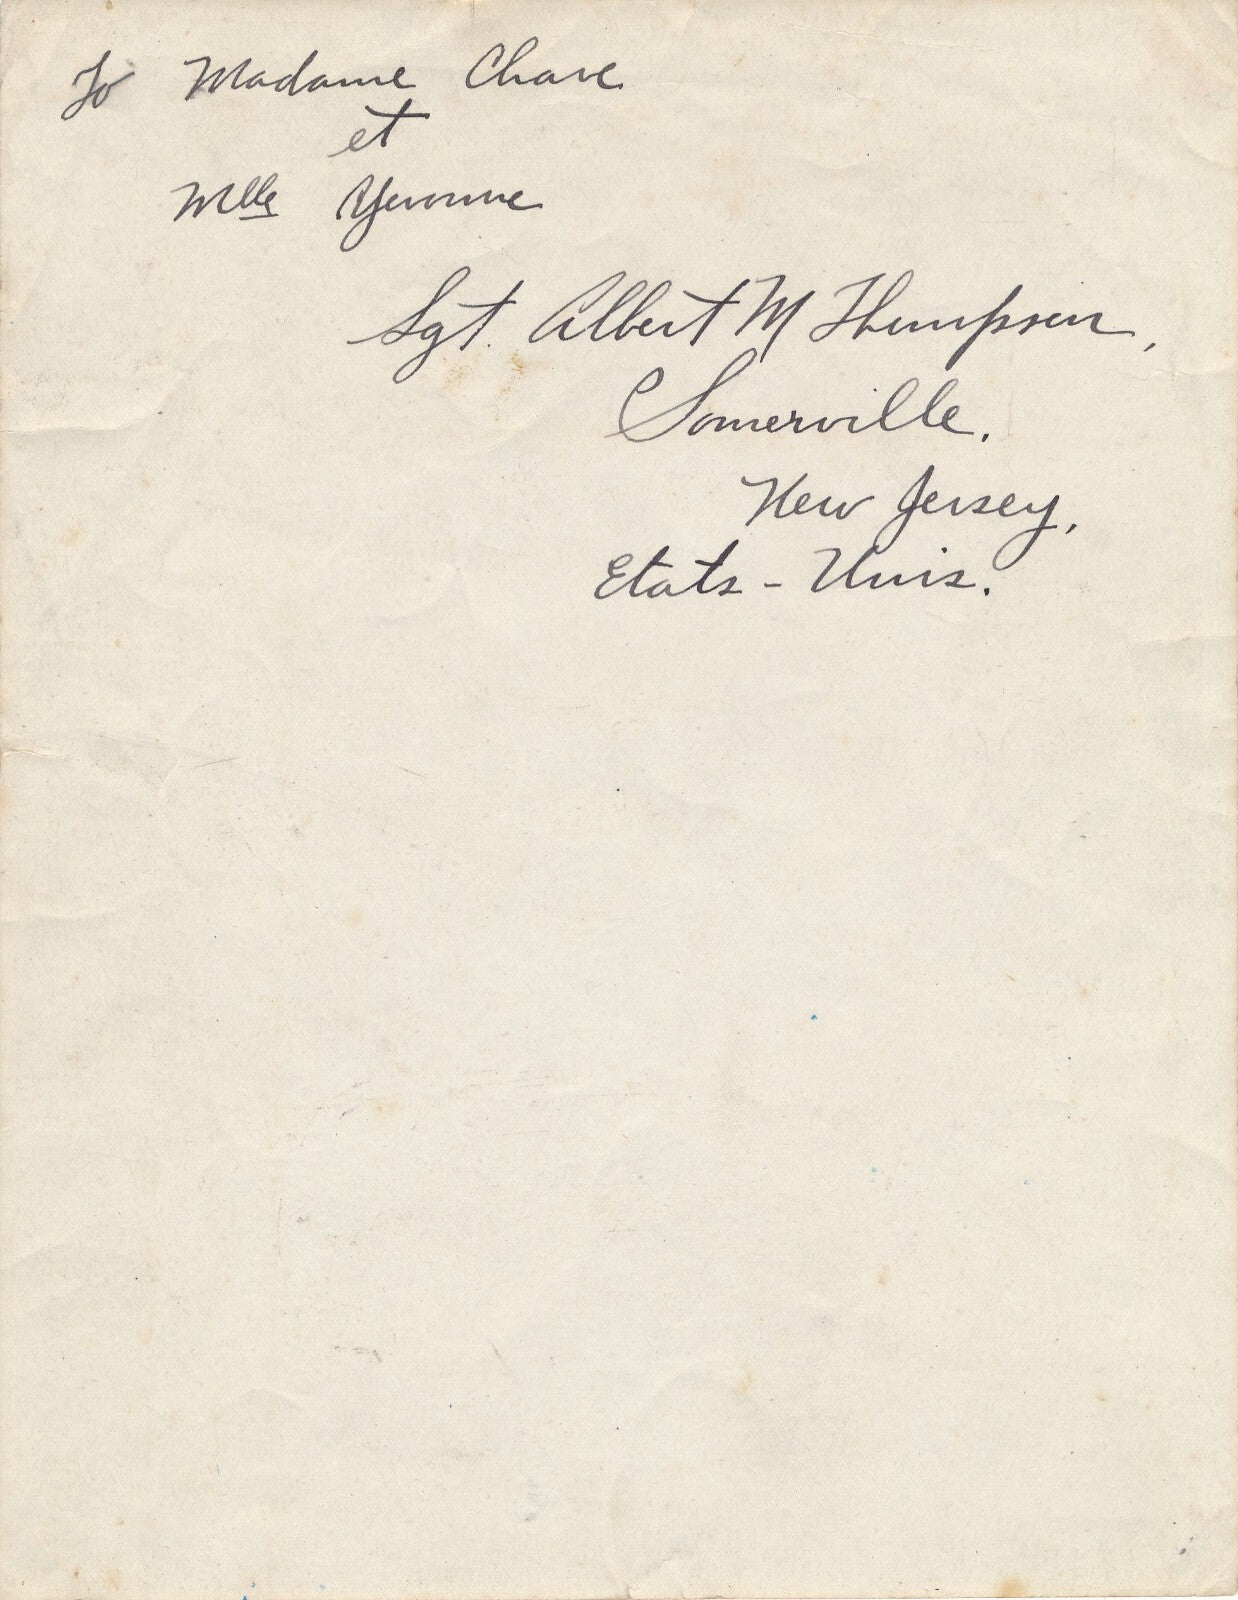 To Madame Chave
et
Mlle Yvonne
Sgt. Albert M Thompson,
Somerville.
New Jersey,
Etats - Unis.